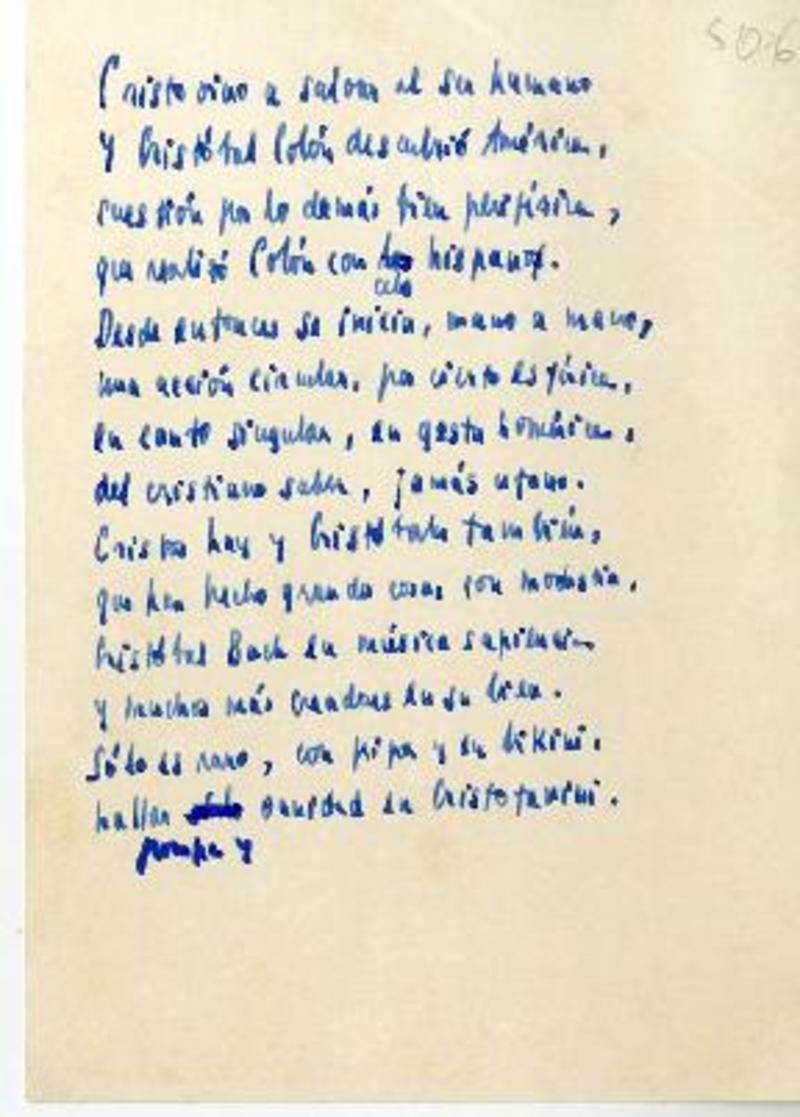 50-6
Cristo vino a salvar al ser humano
y Cristóbal Colón descubrió América,
cuestión por lo demás bien periférica,
que realizó Colón con hispano.
celo
Desde entonces se inicia, mano a mano,
una acción circular, por cierto esférica,
en canto singular, en gesta homérica,
del cristiano saber, jamás ufano.
Cristos hay y Cristóbales también,
que han hecho grandes cosas con modestia,
Cristóbal Bach en música
y muchos más creadores en su bien.
Sólo es raro, con pipa y en bikini,
hallar vanidad en
pompa y